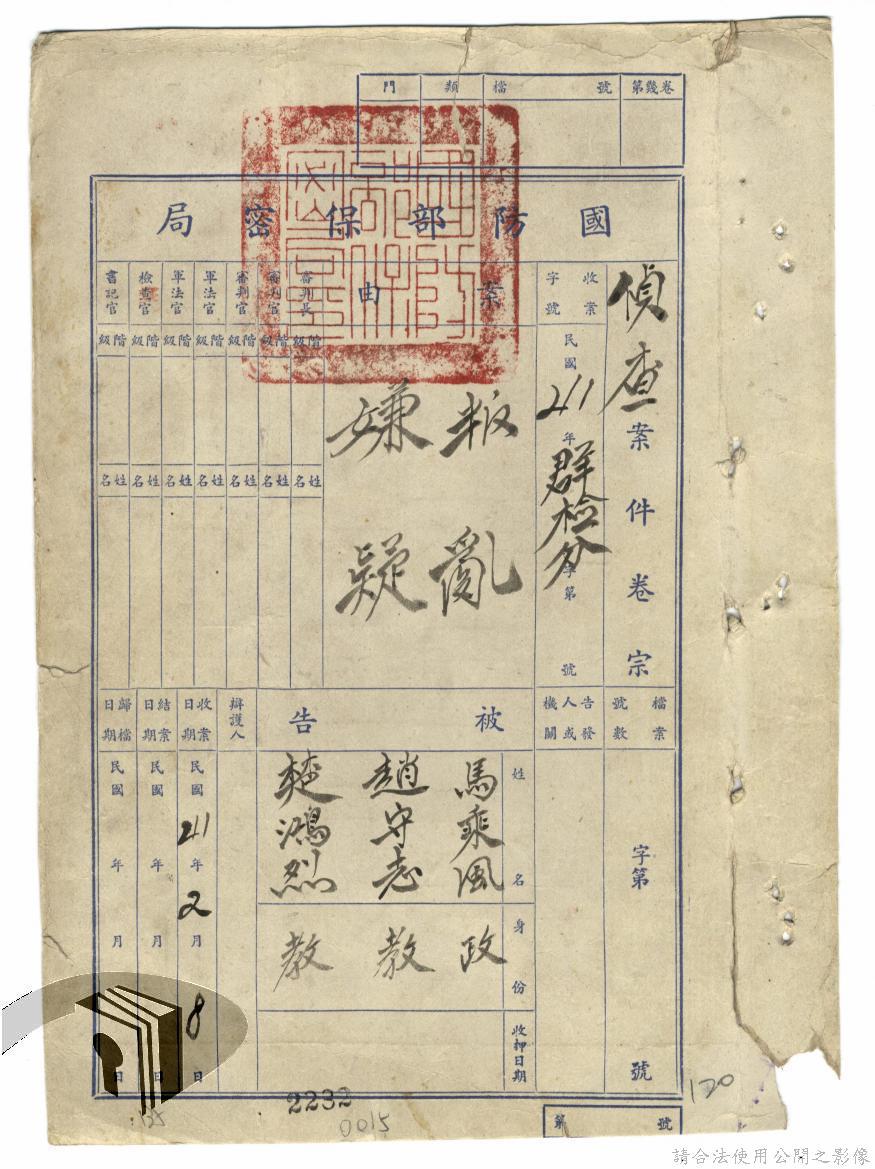 第幾卷
檔號
類
門
國防部保密局
偵查案件卷宗
收案字號
民國41年群檢分字第 號
案由
叛亂
嫌疑
審判長
審判官
審判官
軍法官
軍法官
檢查官
書記官
階級
階級
階級
階級
階級
階級
階級
姓名
姓名
姓名
姓名
姓名
姓名
姓名
檔案號數
字第 號
告發人或機關
被告
姓名
馬乘風
趙守志
楚鴻烈
身份
政
教
教
收押日期
辯護人
收案日期
民國41年2月8日
結案日期
民國 年 月 日
歸檔日期
民國 年 月 日
2232
0015
120
第 號
請合法使用公開之影像